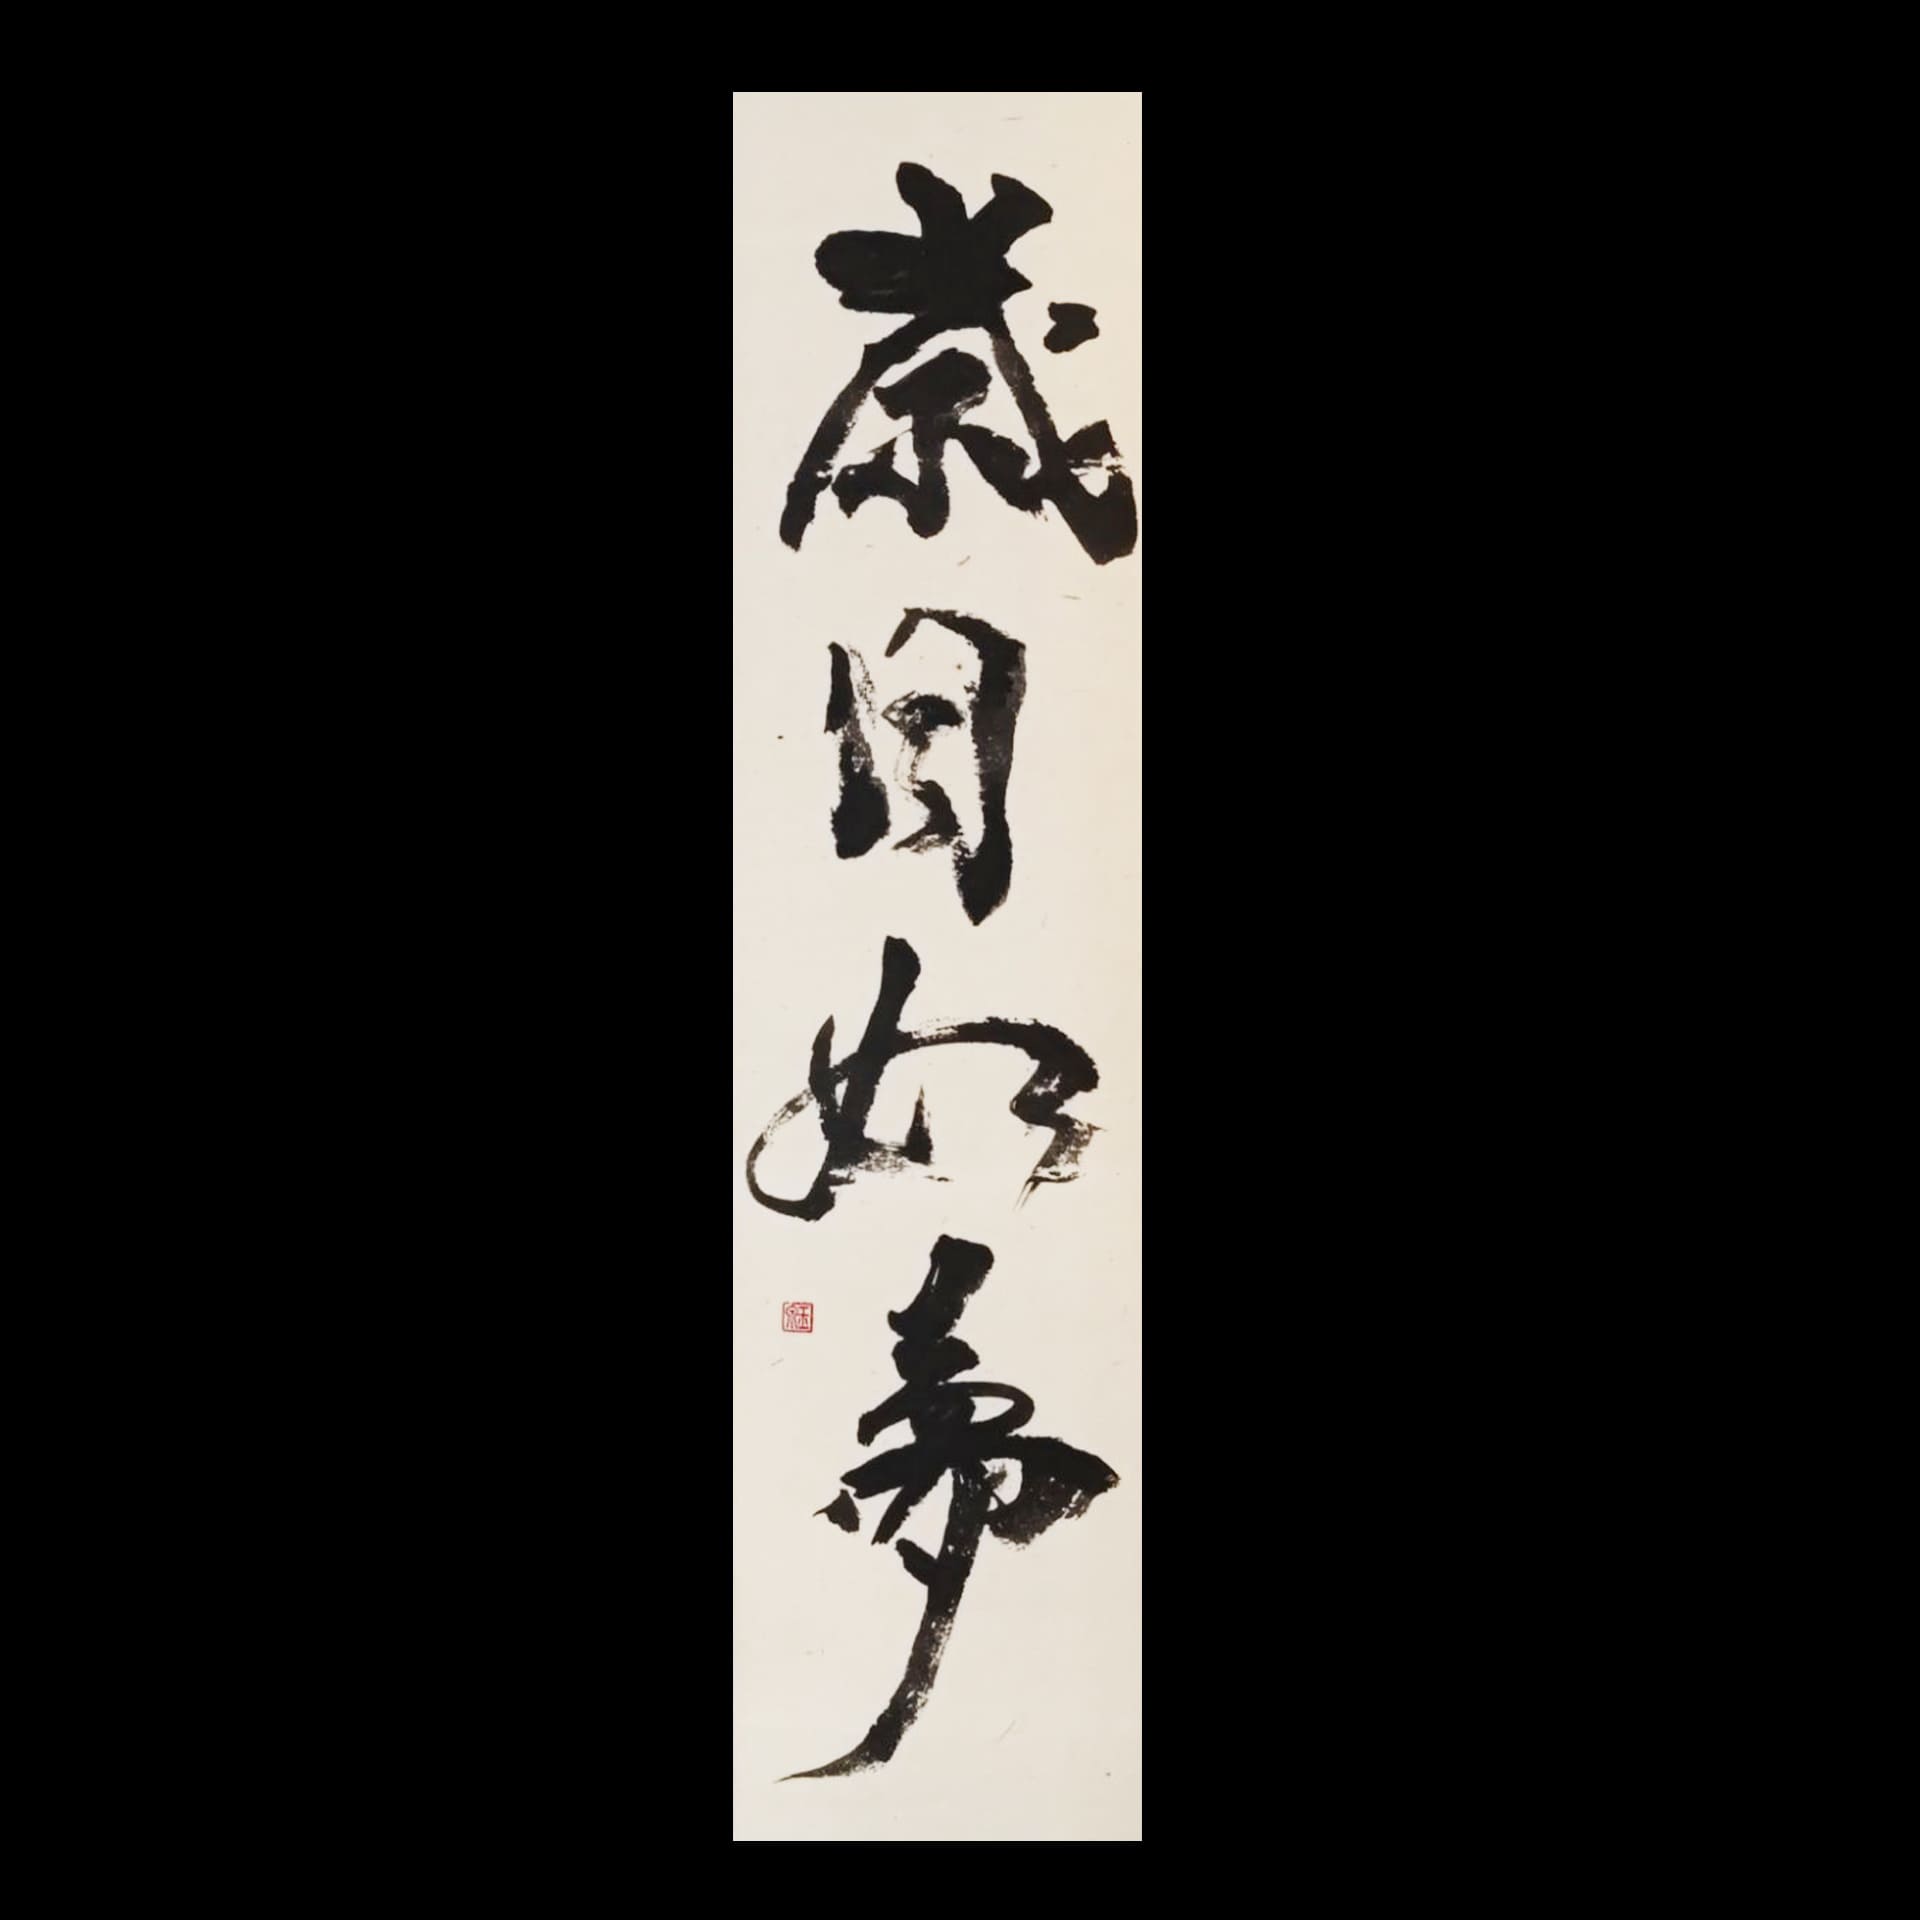 歳月如夢